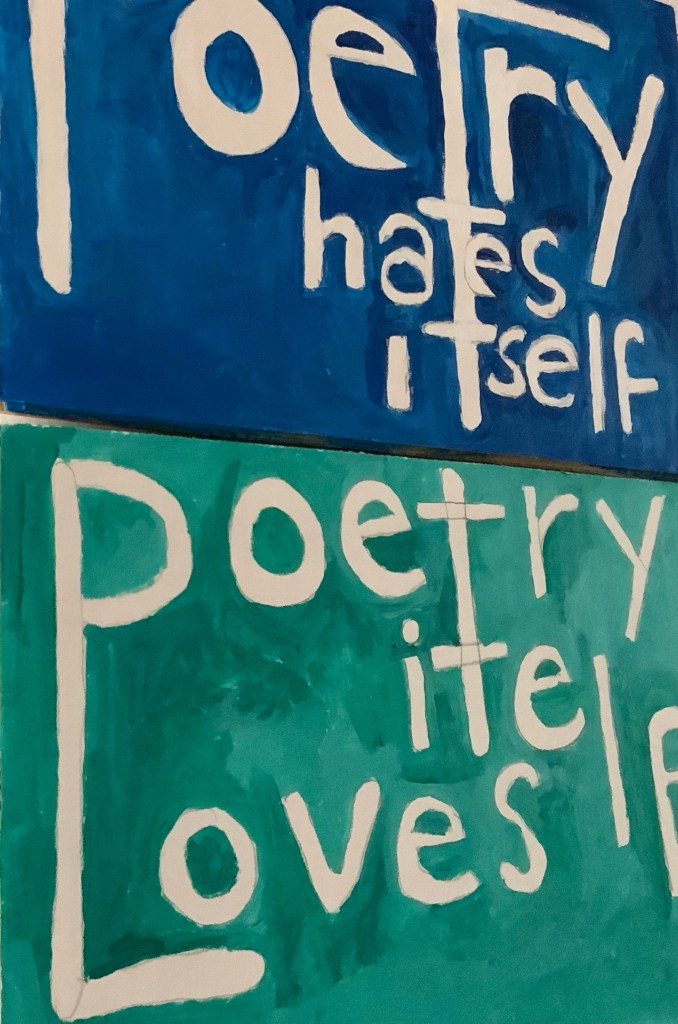 Poetry
hates
itself
Poetry
itelf
Loves